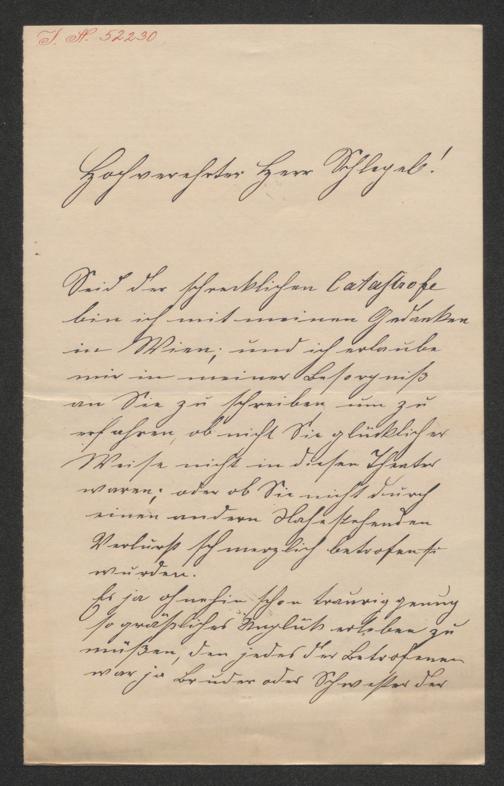 I. N. 52230
Hochverehrter Herr Schlegel!
Seid der schrecklichen Catastrofe
bin ich mit meinen Gedanken
in Wien; und ich erlaube
mir in meiner Besorgniß
an Sie zu schreiben um zu
erfahren, ob nicht Sie glücklicher
Weise nicht in diesen Theater
waren; oder ob Sie nicht durch
einen andern Nahestehenden
Verlurst schmerzlich betrofen
wurden.
Es ja ohnehin schon traurig genug
so gräßliches Unglük erleben zu
müßen, den jedes der Betrofenen
war ja Bruder oder Schwester der